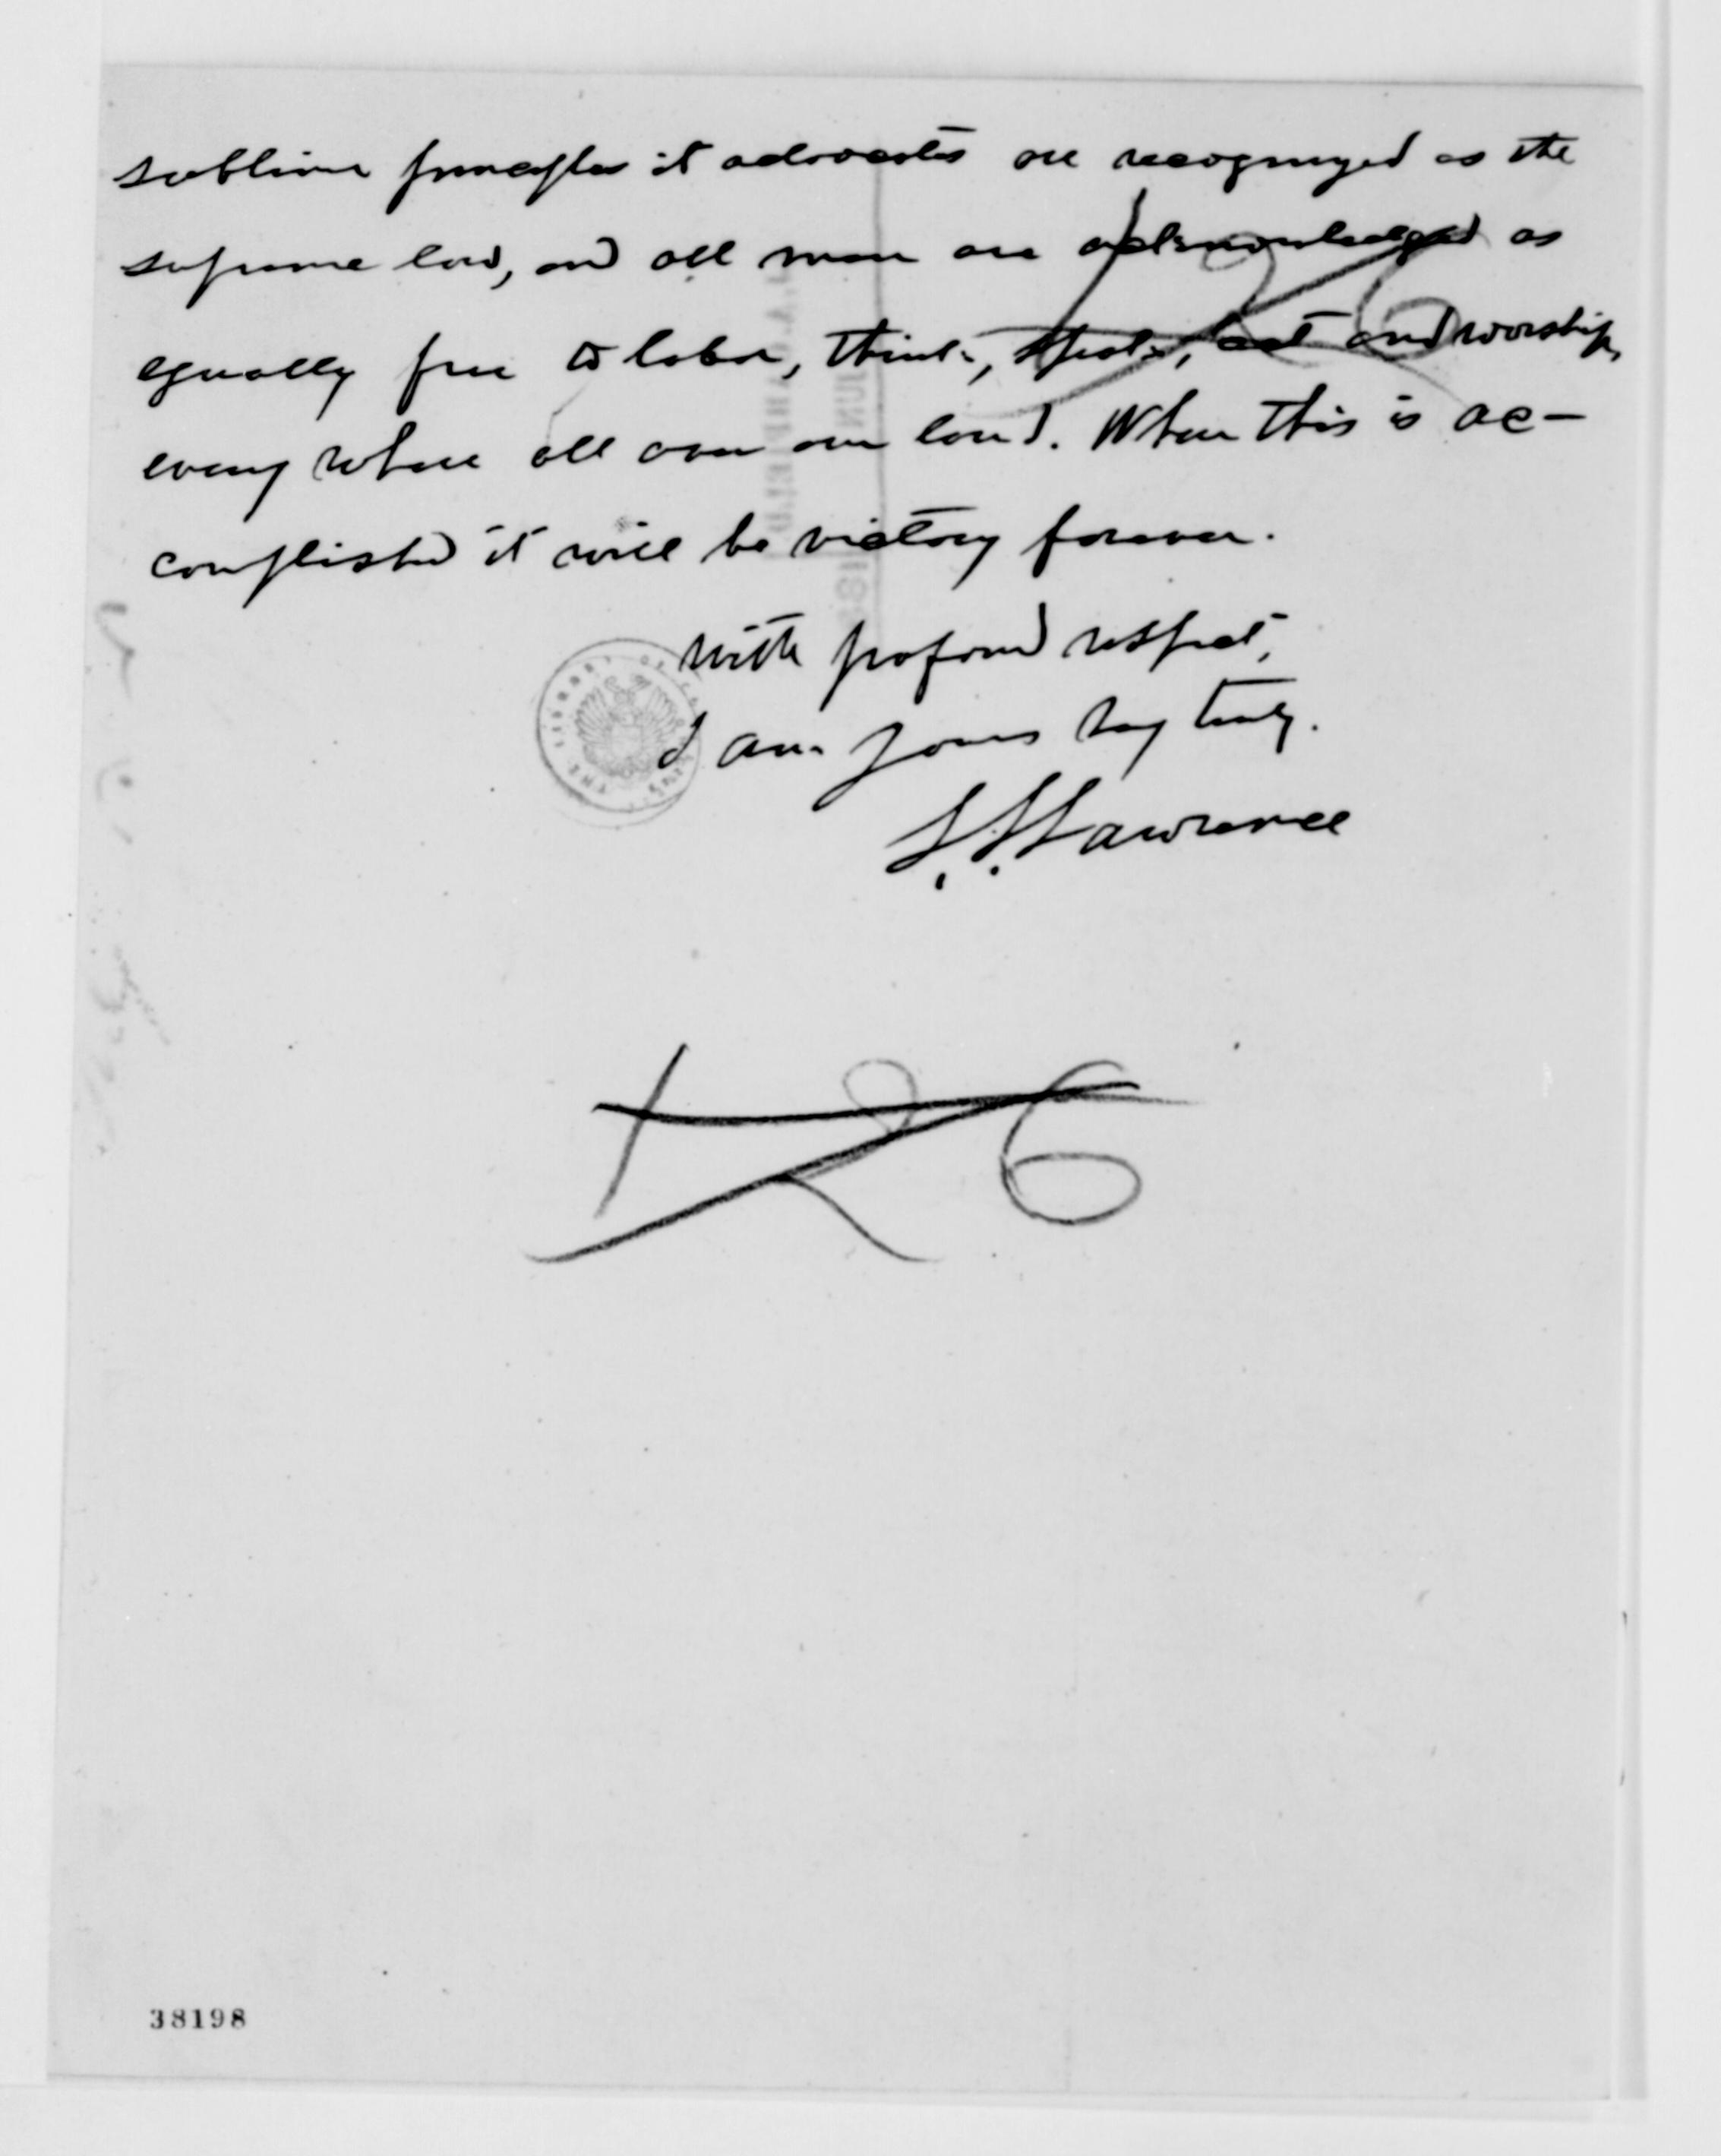 sublime principles it advocates are recognized as the
supreme law, and all men are acknowledged as
equally free to labor, think, speak, act and worship,
every where all over our land. When this is ac-
complished it will be victory forever.
with profound respect,
I am yours very truly.
Lawrence
126
126
38198